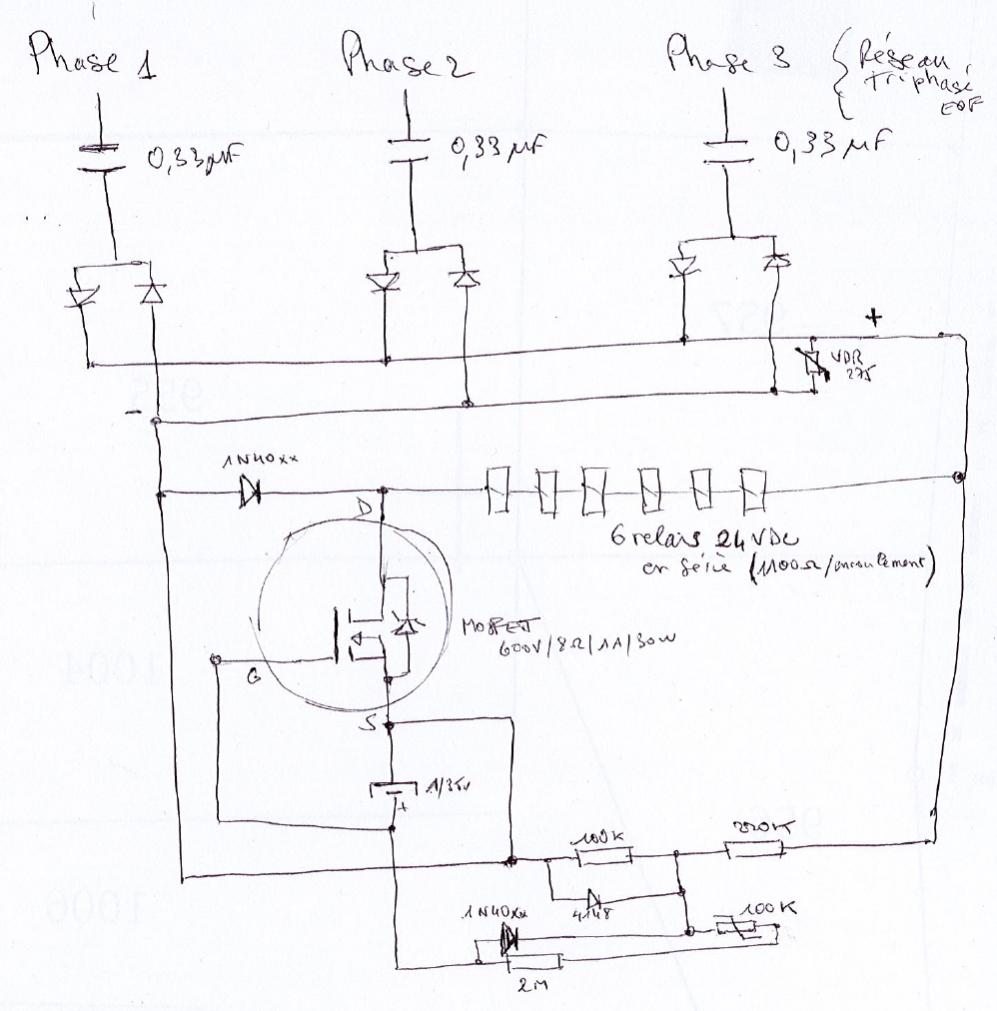 Phase 1
Phase 2
Phase 3
Réseau
triphasé
EDF
0,33µF
0,33µF
0,33µF
+
VDR
275
-
1N40xx
D
6 relais 24VDC
en série (1100Ω/enroulement)
MOSFET
600V/8Ω/1A/30W
G
S
1/35V
+
100K
220K
4148
1N40xx
100K
2M